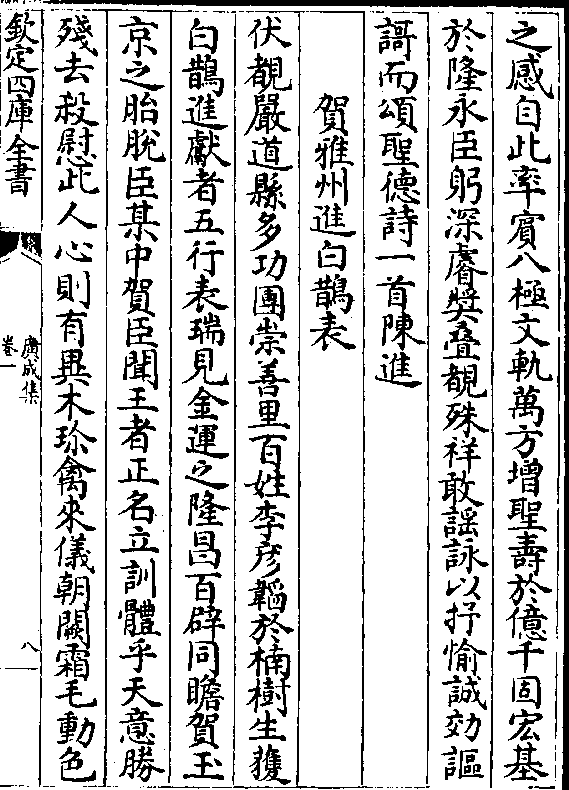 之感自此率賔八極文軌萬方增聖壽於億千固宏基
於隆永臣躬深睿奬叠覩殊祥敢謡詠以抒愉誠効謳
謌而頌聖德詩一首陳進
賀雅州進白鵲表
伏覩嚴道縣多功團崇善里百姓李彦韜於楠樹生獲
白鵲進獻者五行表瑞見金運之隆昌百辟同瞻賀玉
京之胎脫臣某中賀臣聞王者正名立訓體乎天意勝
殘去殺慰此人心則有異木珍禽來儀朝闕霜毛動色
欽定四庫全書
廣成集
卷一
八